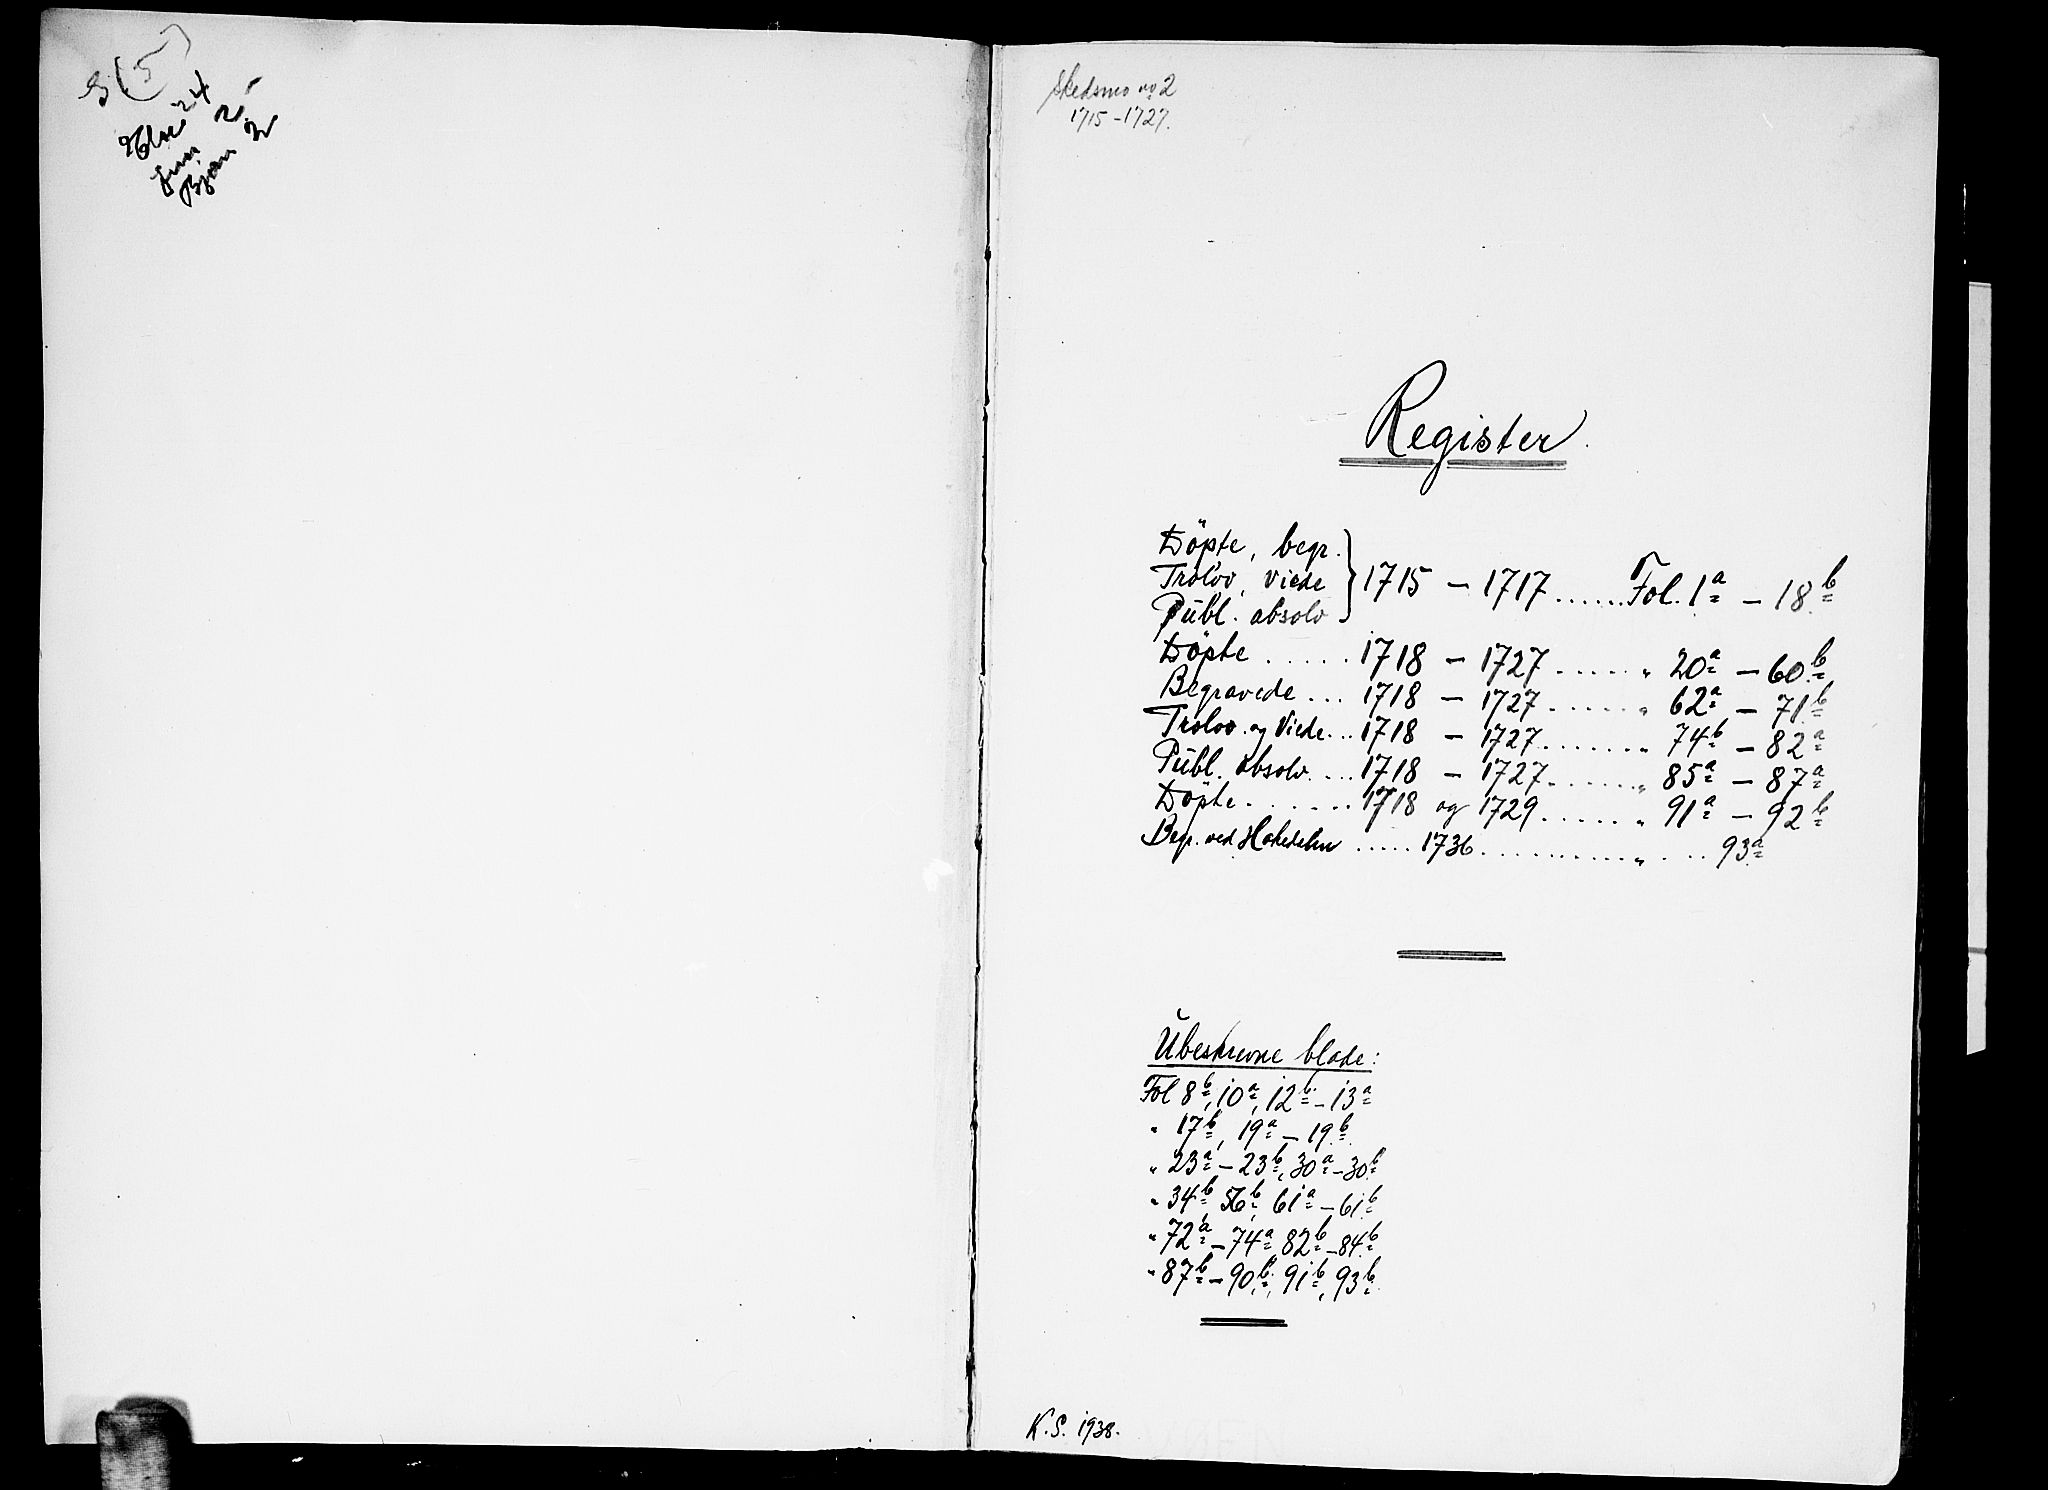 Skedsmo no 2
1715-1727.
Register
Döpte, begr.
Trolov, viede
Publ. absolv
1715 – 1717 ...... Fol. 1a – 18b
Döpte ..... 1718 – 1727 ..... " 20a – 60b
Begravede ... 1718 – 1727 ...... " 62a – 71b
Trolov. og Viede ... 1718 – 1727 ....... " 74b – 82a
Publ. absolv. ... 1718 – 1727 ....... " 85a – 87a
Döpte ....... 1718 og 1729 ...... " 91a – 92b
Begr. ved Hakedalen ..... 1736 .......... " ... 93a
Ubeskrevne blade:
Fol 8b, 10a, 12b – 13a
" 17b, 19a – 19b
" 23a – 23b, 30a – 30b
" 34b 56b, 61a – 61b
" 72a – 74a 82b – 84b
" 87b – 90b, 91b, 93b
K.S. 1938.